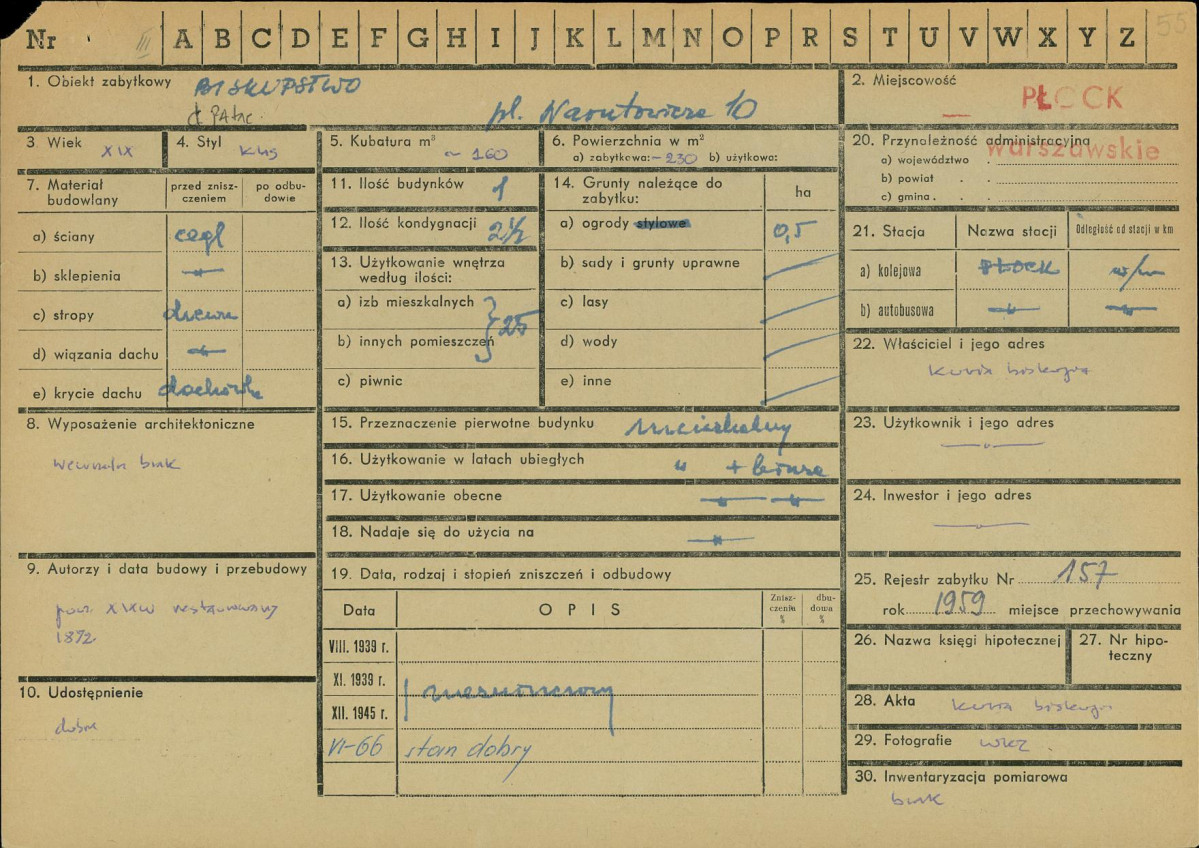 Nr III A B C D E F G H I J K L M N O P R S T U V W X Y Z 55
1. Obiekt zabytkowy BISKUPSTWO
d. Pałac.
pl. Narutowicza 10
2. Miejscowość
PŁOCK
3 Wiek XIX
4. Styl klas
5. Kubatura m³ ~ 160
6. Powierzchnia w m²
a) zabytkowa: ~ 230 b) użytkowa:
20. Przynależność administracyjna
a) województwo . warszawskie
b) powiat . .
c) gmina . . .
7. Materiał budowlany
przed zniszczeniem
po odbudowie
a) ściany cegł
b) sklepienia —"—
c) stropy drewn
d) wiązania dachu —"—
e) krycie dachu dachówk
8. Wyposażenie architektoniczne
wewnątr brak
9. Autorzy i data budowy i przebudowy
pocz XIXw restaurowany
1872
10. Udostępnienie
dobre
11. Ilość budynków 1
12. Ilość kondygnacji 2½
13. Użytkowanie wnętrza
według ilości:
a) izb mieszkalnych
b) innych pomieszczeń } 25
c) piwnic
14. Grunty należące do
zabytku:
ha
a) ogrody stylowe 0,5
b) sady i grunty uprawne
c) lasy
d) wody
e) inne
15. Przeznaczenie pierwotne budynku mieszkalny
16. Użytkowanie w latach ubiegłych " + biura
17. Użytkowanie obecne —"— —"—
18. Nadaje się do użycia na —"—
19. Data, rodzaj i stopień zniszczeń i odbudowy
Data
OPIS
Zniszczenia %
dbudowa %
VIII. 1939 r.
XI. 1939 r.
XII. 1945 r.
VI-66 stan dobry
21. Stacja Nazwa stacji Odległość od stacji w km
a) kolejowa PŁOCK w/m
b) autobusowa —"— —"—
22. Właściciel i jego adres
Kuria biskupia
23. Użytkownik i jego adres
—"—
24. Inwestor i jego adres
—"—
25. Rejestr zabytku Nr 157
rok 1959 miejsce przechowywania
26. Nazwa księgi hipotecznej
27. Nr hipoteczny
28. Akta Kuria biskupia
29. Fotografie WKZ.
30. Inwentaryzacja pomiarowa
brak